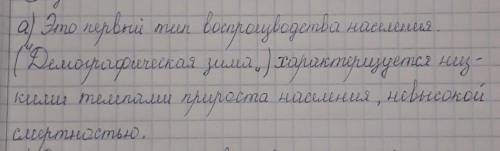 а) Это первый тип воспроизводства населения.
("Демографическая зима„) характеризуется низ-
кими темпами прироста населения, невысокой
смертностью.